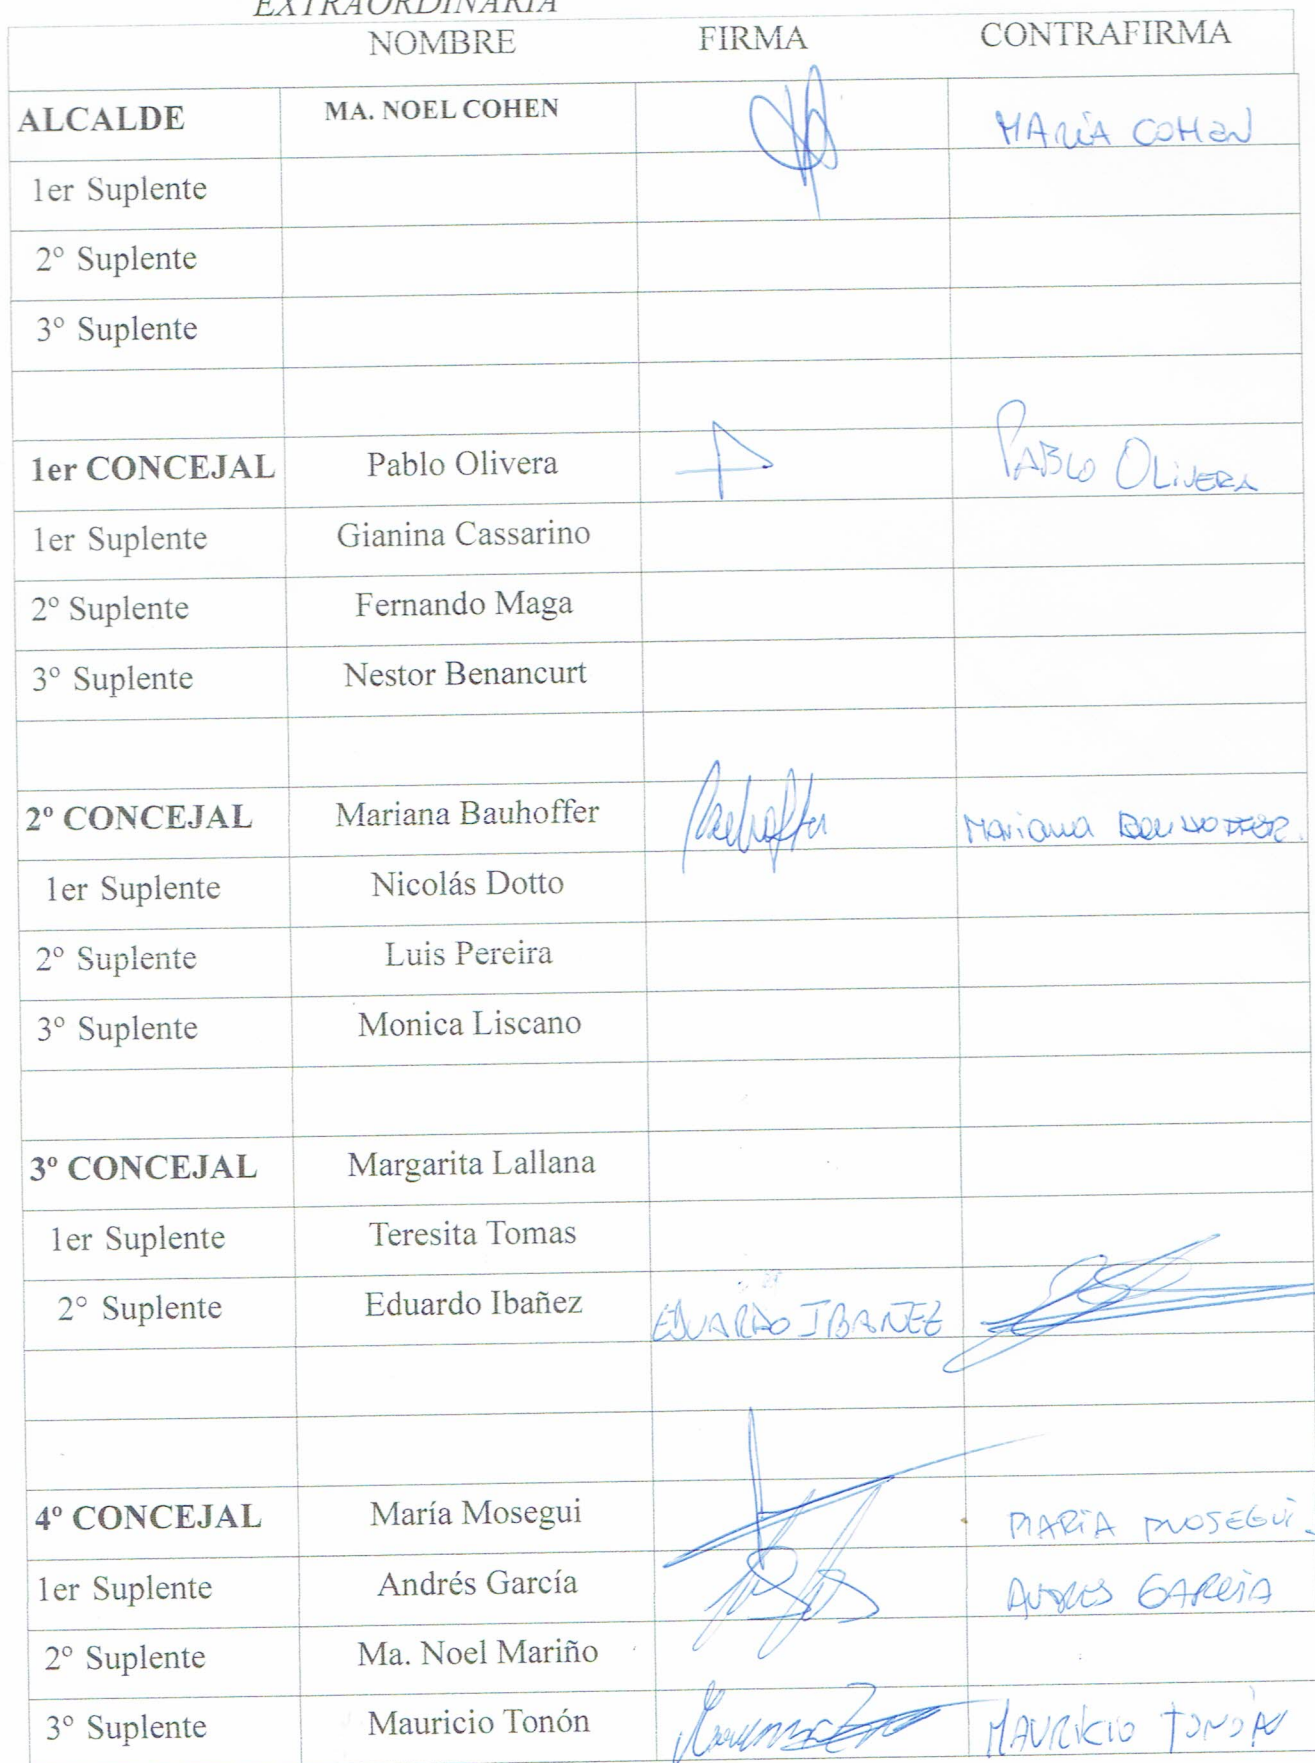 EXTRAORDINARIA
NOMBRE FIRMA CONTRAFIRMA
ALCALDE MA. NOEL COHEN MARIA COHEN
1er Suplente
2° Suplente
3° Suplente
1er CONCEJAL Pablo Olivera PABLO OLIVERA
1er Suplente Gianina Cassarino
2° Suplente Fernando Maga
3° Suplente Nestor Benancurt
2º CONCEJAL Mariana Bauhoffer Bauhoffer Mariana BAUHOFFER.
1er Suplente Nicolás Dotto
2° Suplente Luis Pereira
3° Suplente Monica Liscano
3º CONCEJAL Margarita Lallana
1er Suplente Teresita Tomas
2° Suplente Eduardo Ibañez EDUARDO IBAÑEZ
4º CONCEJAL María Mosegui MARIA MOSEGUI.
1er Suplente Andrés García ANDRES GARCIA
2° Suplente Ma. Noel Mariño
3° Suplente Mauricio Tonón MAURICIO TONON